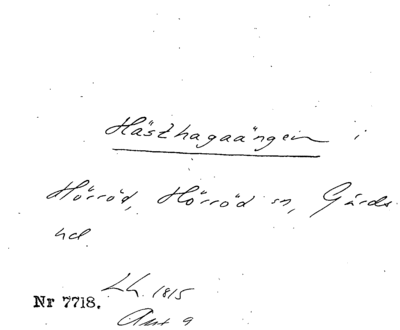 Hästhagaängen i
Hörröd, Hörröd sn, Gärds
hd
Lh. 1815
Nr 7718.
Akt 9